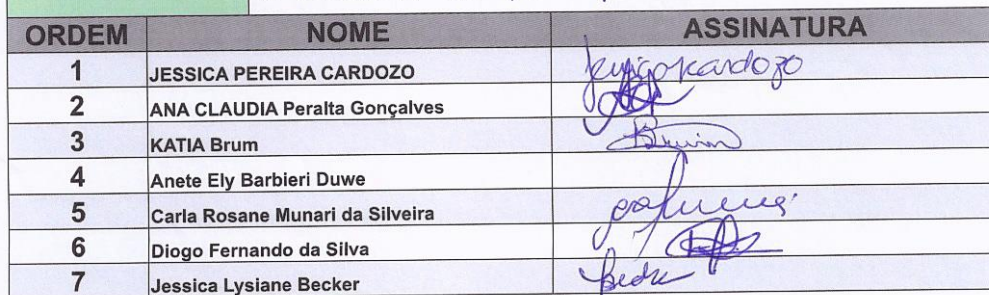 ORDEM NOME ASSINATURA
1 JESSICA PEREIRA CARDOZO
2 ANA CLAUDIA Peralta Gonçalves
3 KATIA Brum Brum
4 Anete Ely Barbieri Duwe
5 Carla Rosane Munari da Silveira
6 Diogo Fernando da Silva
7 Jessica Lysiane Becker